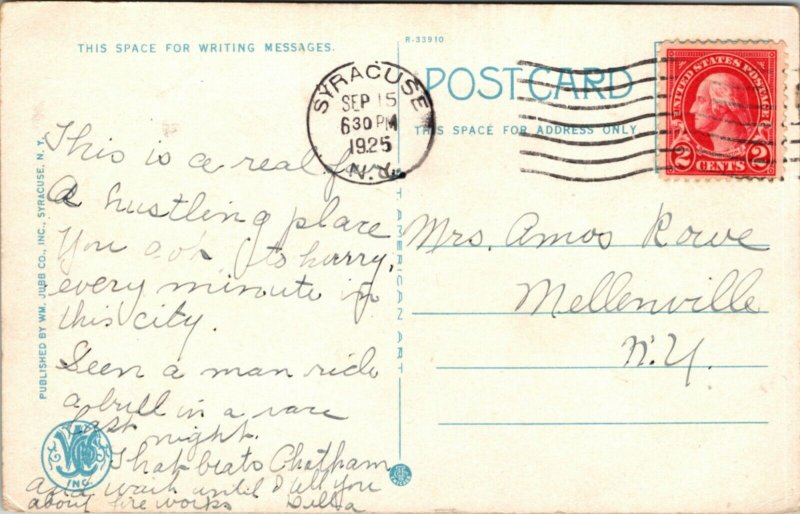 THIS SPACE FOR WRITING MESSAGES.
R-33910
POST CARD
THIS SPACE FOR ADDRESS ONLY.
SYRACUSE
SEP 15
630 PM
1925
N.Y.
UNITED STATES POSTAGE
2 CENTS 2
PUBLISHED BY WM. JUBB CO., INC., SYRACUSE, N. Y.
T AMERICAN ART
This is a real
A hustling place
You to hurry,
every minute in
this city.
Seen a man ride
a bull in a race
last night.
That beats Chatham
and wait until I tell you
about fire works Della
INC.
Mrs. Amos Rowe
Mellenville
N.Y.